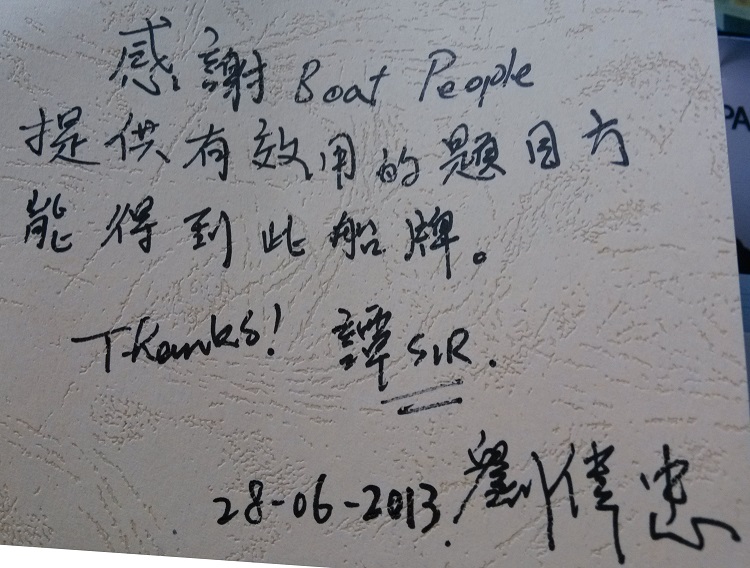 感謝 Boat People
提供有效用的題目方
能得到此船牌。
Thanks! 譚SIR.
28-06-2013. 劉偉忠
PA